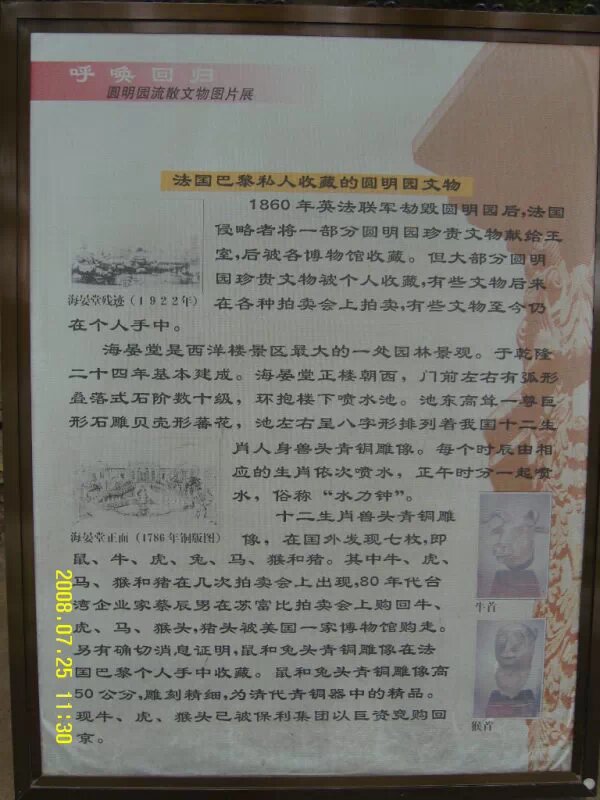 呼唤回归
圆明园流散文物图片展
法国巴黎私人收藏的圆明园文物
1860年英法联军劫毁圆明园后,法国
侵略者将一部分圆明园珍贵文物献给王
室,后被各博物馆收藏。但大部分圆明
园珍贵文物被个人收藏,有些文物后来
在各种拍卖会上拍卖,有些文物至今仍
在个人手中。
海晏堂残迹(1922年)
海晏堂是西洋楼景区最大的一处园林景观。于乾隆
二十四年基本建成。海晏堂正楼朝西,门前左右有弧形
叠落式石阶数十级,环抱楼下喷水池。池东高耸一尊巨
形石雕贝壳形蕃花,池左右呈八字形排列着我国十二生
肖人身兽头青铜雕像。每个时辰由相
应的生肖依次喷水,正午时分一起喷
水,俗称“水力钟”。
海晏堂正面(1786年铜版图)
十二生肖兽头青铜雕
像,在国外发现七枚,即
鼠、牛、虎、兔、马、猴和猪。其中牛、虎、
马、猴和猪在几次拍卖会上出现,80年代台
湾企业家蔡辰男在苏富比拍卖会上购回牛、
虎、马、猴头,猪头被美国一家博物馆购走。
另有确切消息证明,鼠和兔头青铜雕像在法
国巴黎个人手中收藏。鼠和兔头青铜雕像高
50公分,雕刻精细,为清代青铜器中的精品。
现牛、虎、猴头已被保利集团以巨资竞购回
京。
牛首
猴首
2008.07.25 11:30